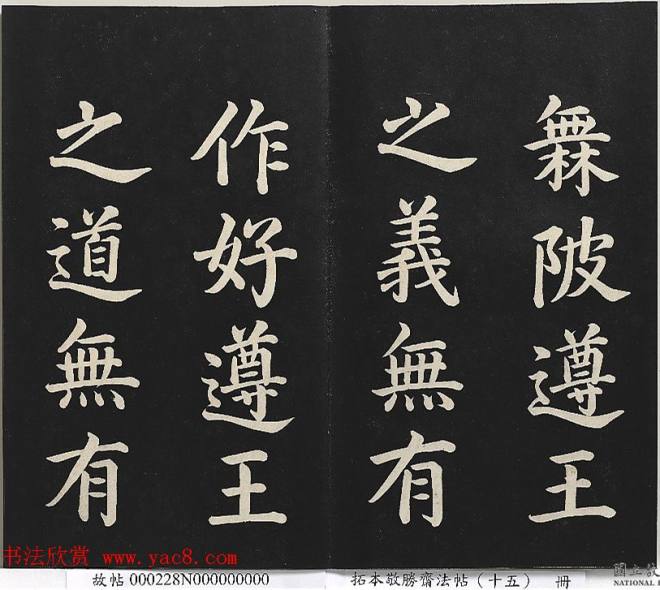 橆陂遵王
之義無有
作好遵王
之道無有
书法欣赏 www.yac8.com
故帖 000228N000000000
拓本敬勝齋法帖（十五） 冊
國立故
NATIONAL